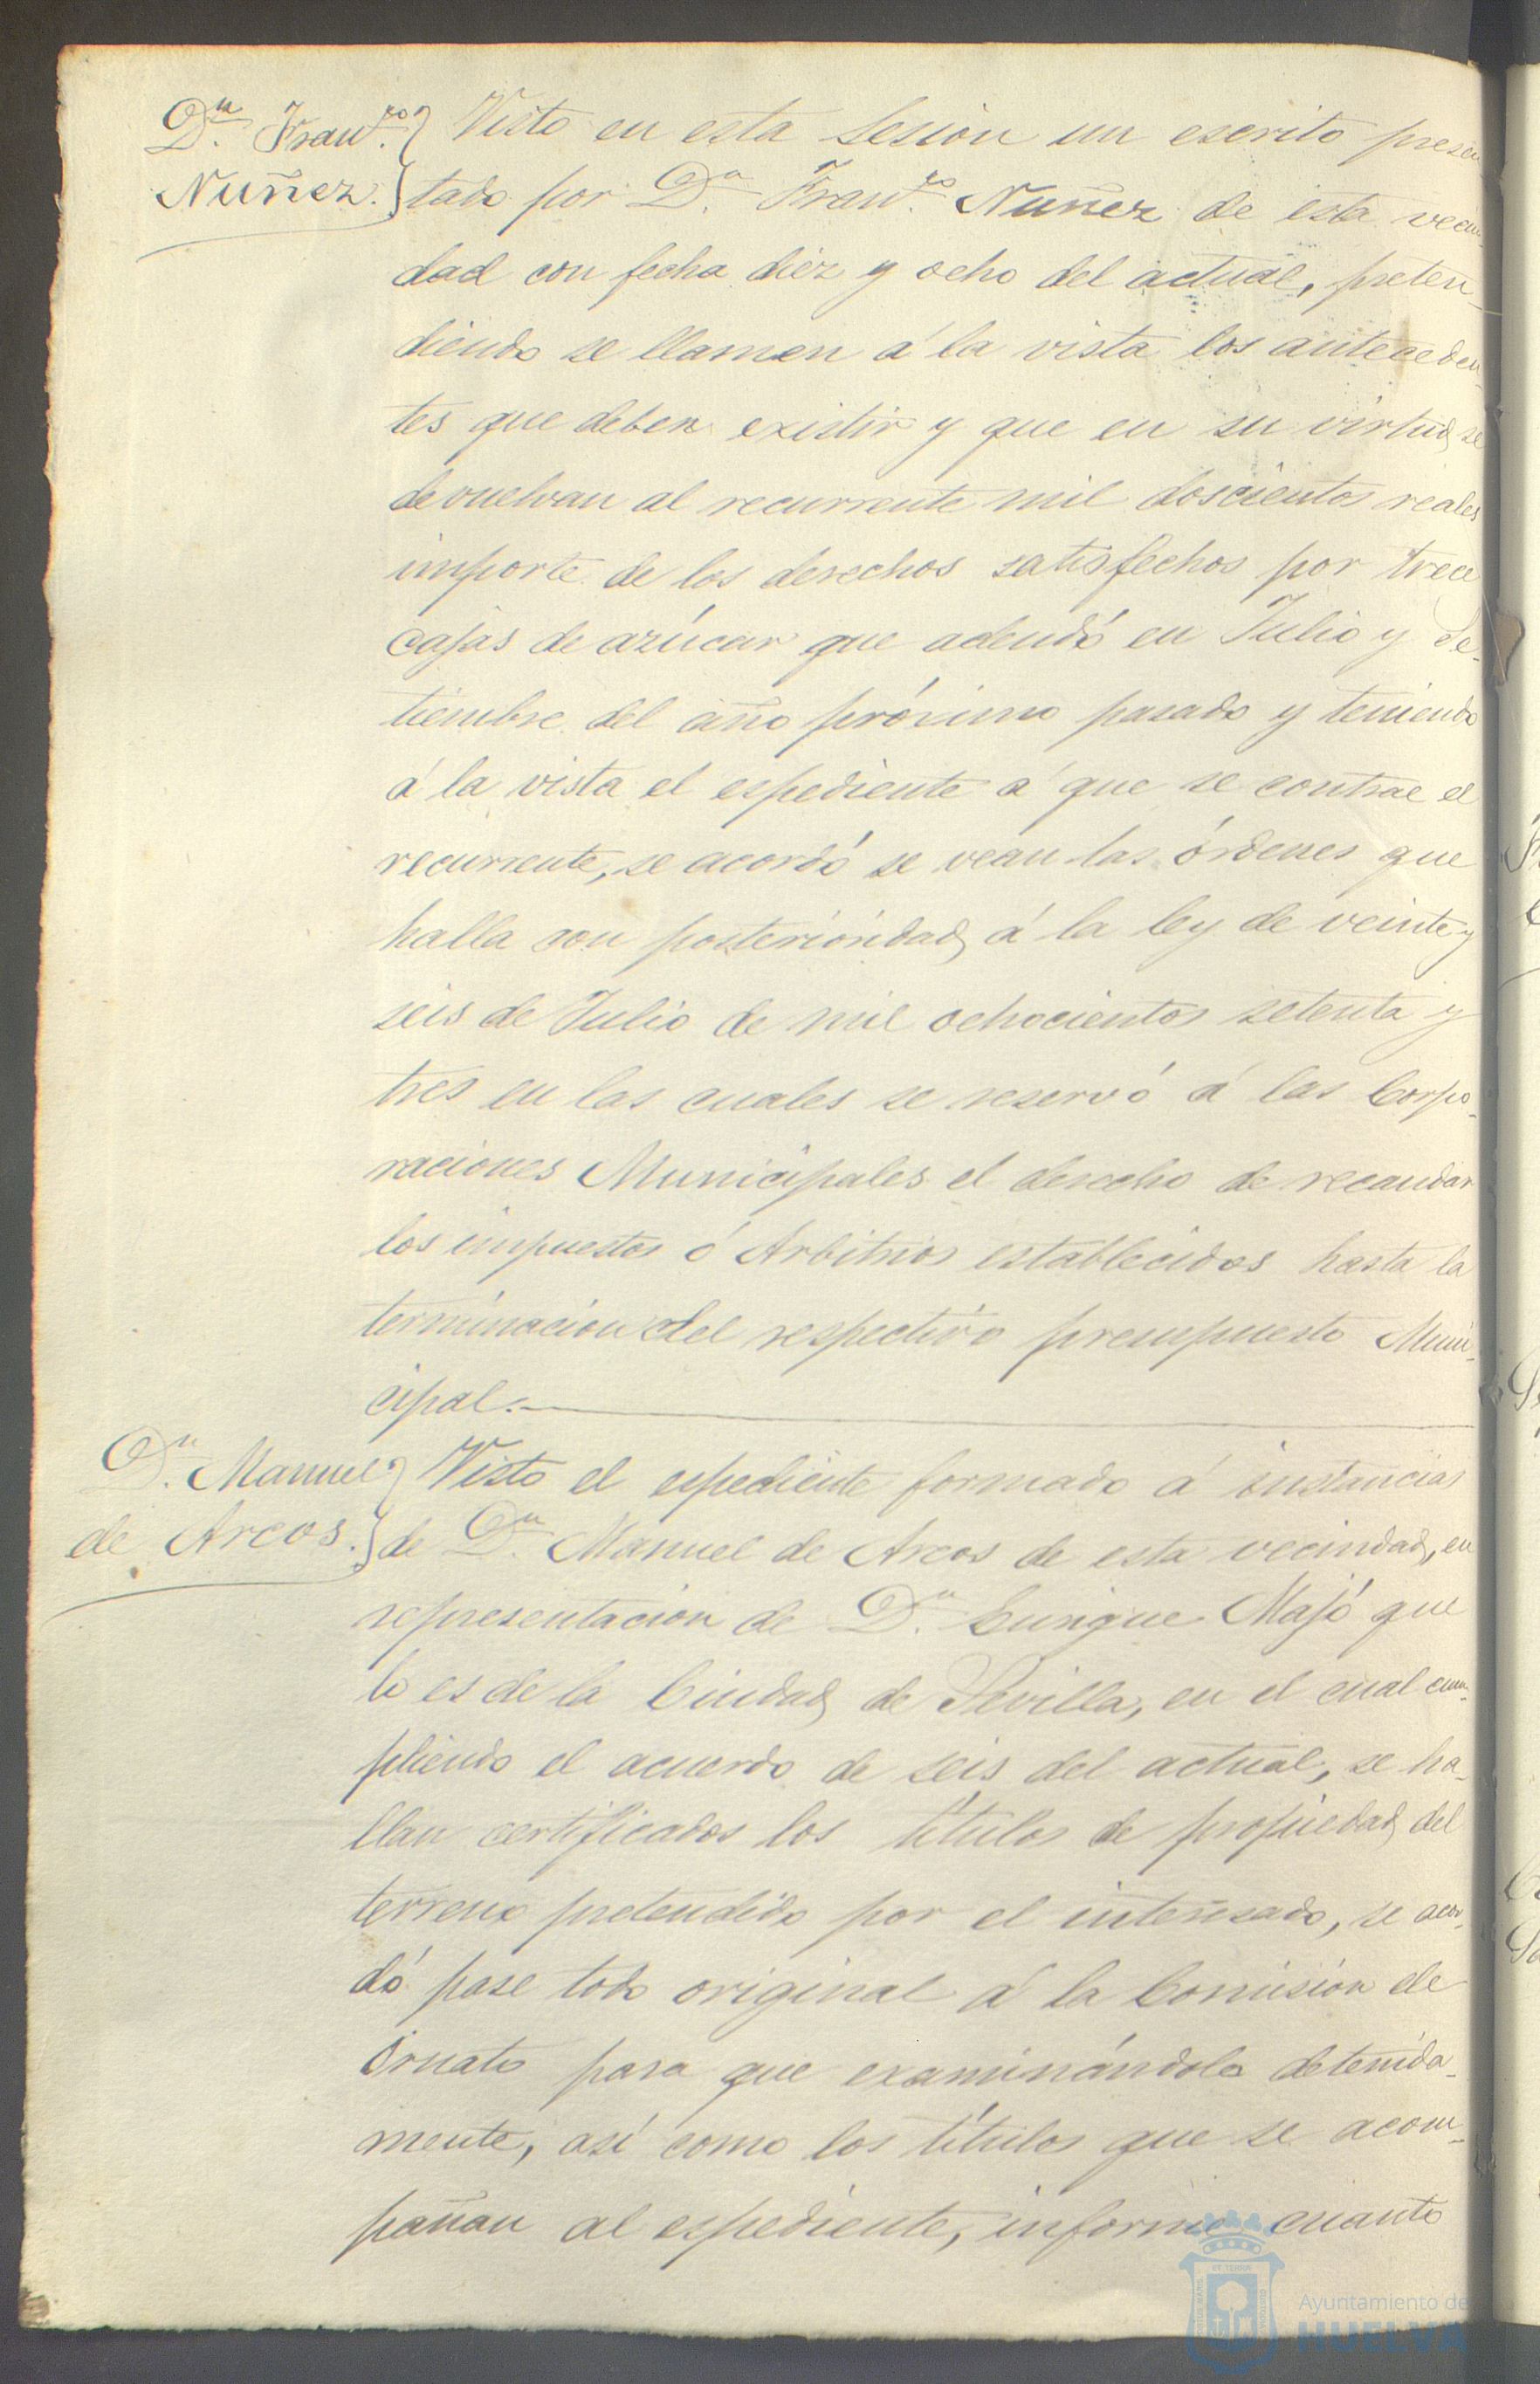 Dn. Franco. Nuñez.
Visto en esta Sesion un escrito presen
tado por Dn. Franco. Nuñez de esta vecin-
dad con fecha diez y ocho del actual, preten-
diendo se llamen á la vista los anteceden-
tes que deben existir y que en su virtud se
devuelvan al recurrente mil doscientos reales
importe de los derechos satisfechos por trece
cajas de azúcar que adeudó en Julio y Se-
tiembre del año próximo pasado y teniendo
á la vista el espediente á que se contrae el
recurrente, se acordó se vean las órdenes que
halla con posterioridad á la ley de veinte y
seis de Julio de mil ochocientos setenta y
tres en las cuales se reservó á las Corpo-
raciones Municipales el derecho de recaudar
los impuestos ó Arbitrios establecidos hasta la
terminacion del respectivo presupuesto Muni-
cipal.
Dn. Manuel de Arcos.
Visto el espediente formado á instancias
de Dn. Manuel de Arcos de esta vecindad, en
representacion de Dn. Enrique Majó que
lo es de la Ciudad de Sevilla, en el cual cum-
pliendo el acuerdo de seis del actual, se ha-
llan certificados los títulos de propiedad del
terreno pretendido por el interesado, se acor-
dó pase todo original á la Comision de
Ornato para que examinándolo detenida-
mente, así como los títulos que se acom-
pañan al espediente, informe cuanto
Ayuntamiento de
HUELVA